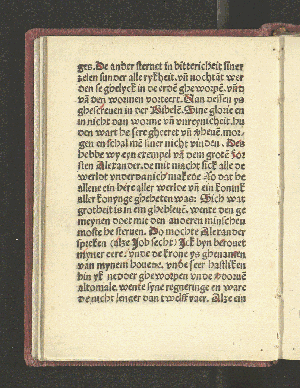 ges. De ander sternet in bittericheit siner
zelen sunder alle rykheit. vn̄ nochtāt wer
den se ghelyck in de erdē ghe worpē. vn̄ d
vā den wormen vorteert. Van dessen ys
ghescreuen in der Bibelē. Sine glorie en
is nicht dan worme vn̄ vnreynicheit. hu
den wart he sere gheeret vn̄ vheuē. mor-
gen en schal mē siner nicht vinden. Des
hebbe wy eyn exempel vā dem grotē vor
sten Alexander. de mit macht sick alle de
werlot vnderdanich makede So dat he
allene ein here aller werlde vn̄ ein konink
aller konynge gheheten was. Sich wat
grotheit is in em ghebleuē. wente den ge
meynen doet mit den anderen minschen
moste he steruen. Do mochte Alexander
spreken (alze Job secht) Ick byn berouet
myner eere. vnde de krone ys ghenamen
van mynem houede. vnde seer hastliken
bin yk nedder ghe worpen vnde vordoruē
altomale. wente syne regneringe en ware
de nicht lenger dan twelff yaer. Alze ein